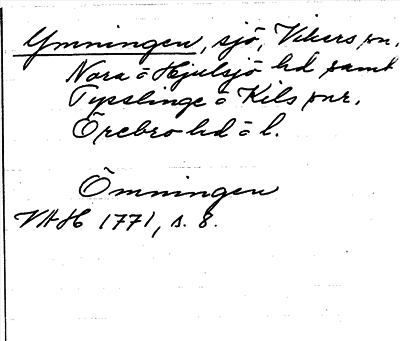 Ymningen, sjö, Vikers sn,
Nora o Hjulsjö hd samt
Tysslinge o Kils snr.
Örebro hd o l.
Ömningen
VAH 1771, s. 8.